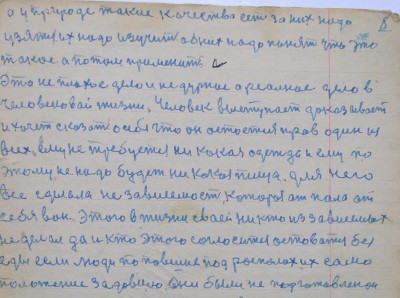 а у природе такие качества есть за них надо 8
узяти их надо изучит об них надо понят что это
такое а потом применит
Это не плохое дело и не дурное а реалное дело в
человеческой жизни. Человек выступает доказивает
и хочет сказат о себя что он остостся прав один из
всех, ему не требуется ни какая одежды и ему по
этому не надо будет ни какая пища. для него
все сделала не зависемост которая от пала от
себя вон. Этого в жизни своей ни кто из зависемых
не делал да и кто этого согласится оставатся без
еды если люди по повишие под располох их само
положение задовило. Они были не подготовленои